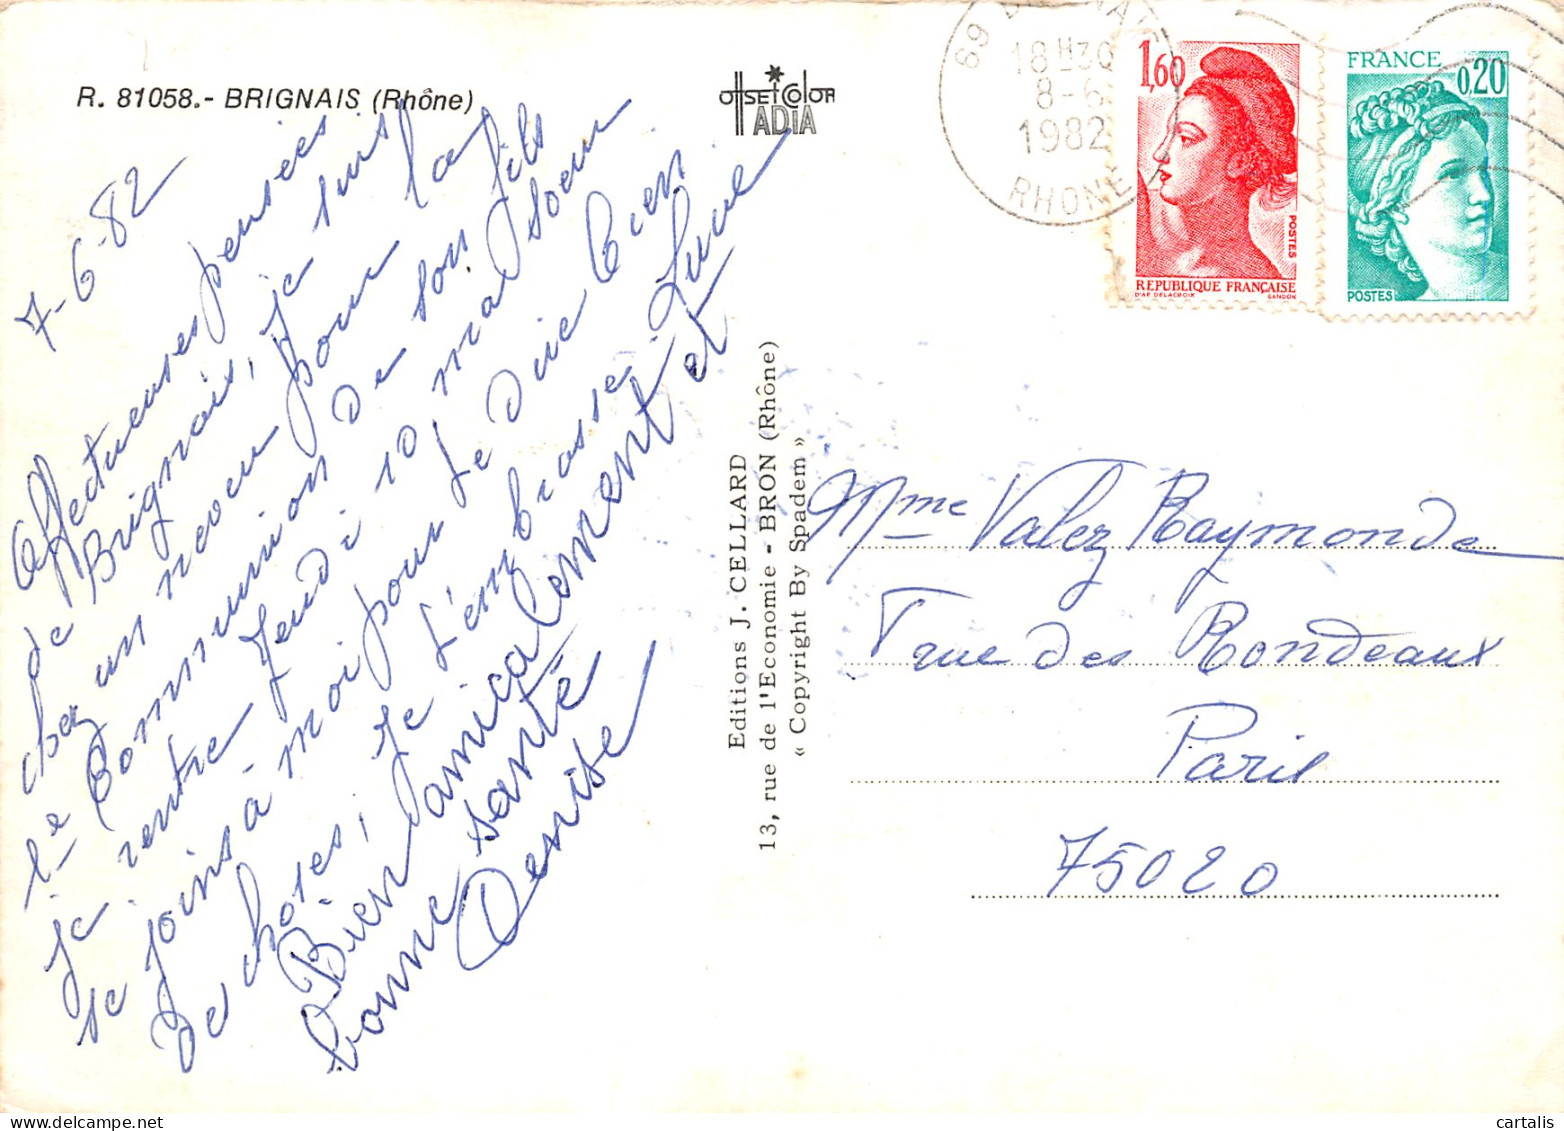 R. 81058.- BRIGNAIS (Rhône)
OFFSETCOLOR
ADIA
7-6-82
Affectueuses pensées
de Brignais, je suis
chez un neveu pour la
1re Communion de son fils
je rentre Jeudi 10 ma soeur
se joins à moi pour te dire bien
de choses, je t'embrasse
Bien amicalement et
bonne santé
Denise
Editions J. CELLARD
13, rue de l'Economie - BRON (Rhône)
« Copyright By Spadem »
69 BRIGNAIS
18 H30
8-6
1982
RHONE
1,60
POSTES
REPUBLIQUE FRANÇAISE
D'AP. DELACROIX GANDON
FRANCE
0,20
POSTES
Mme Valez Raymonde
7 rue des Rondeaux
Paris
75020
cartalis